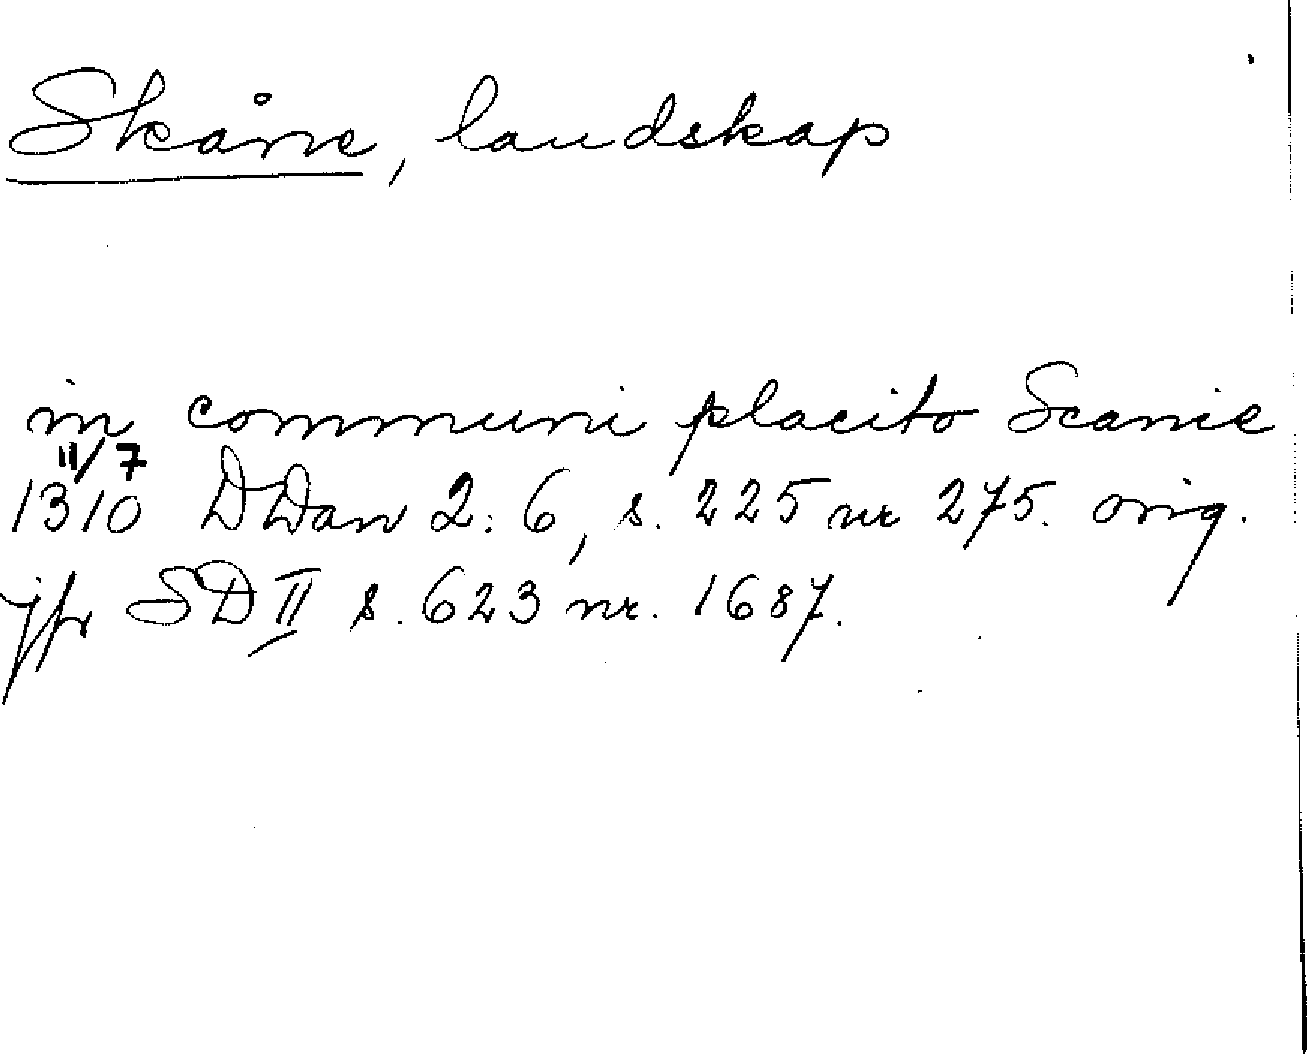 Skåne, landskap
in communi placito Scanie
11/7
1310 DDan 2:6, s. 225 nr 275. orig.
jfr SD II s. 623 nr. 1687.